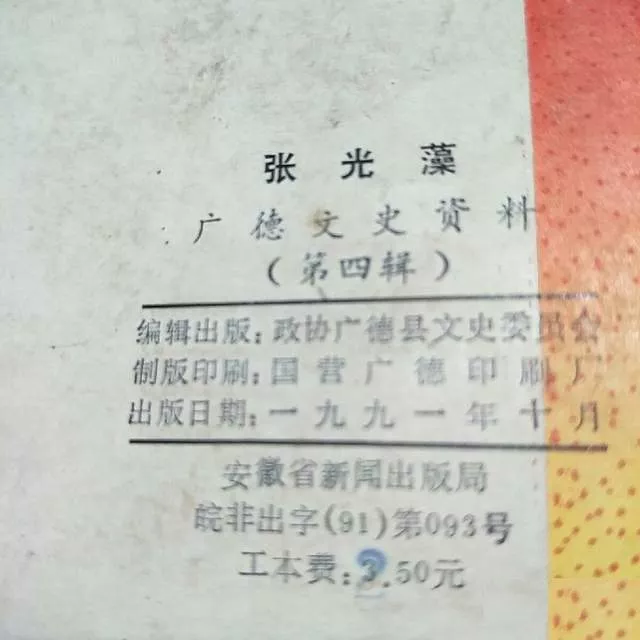 张光藻
广德文史资料
（第四辑）
编辑出版：政协广德县文史委员会
制版印刷：国营广德印刷厂
出版日期：一九九一年十月
安徽省新闻出版局
皖非出字(91)第093号
工本费：3.50元